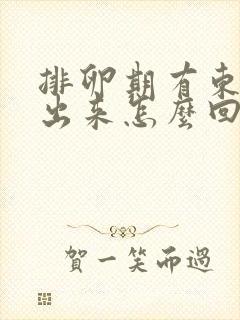 排卵期有東
出来怎麼回
賀一笑而過